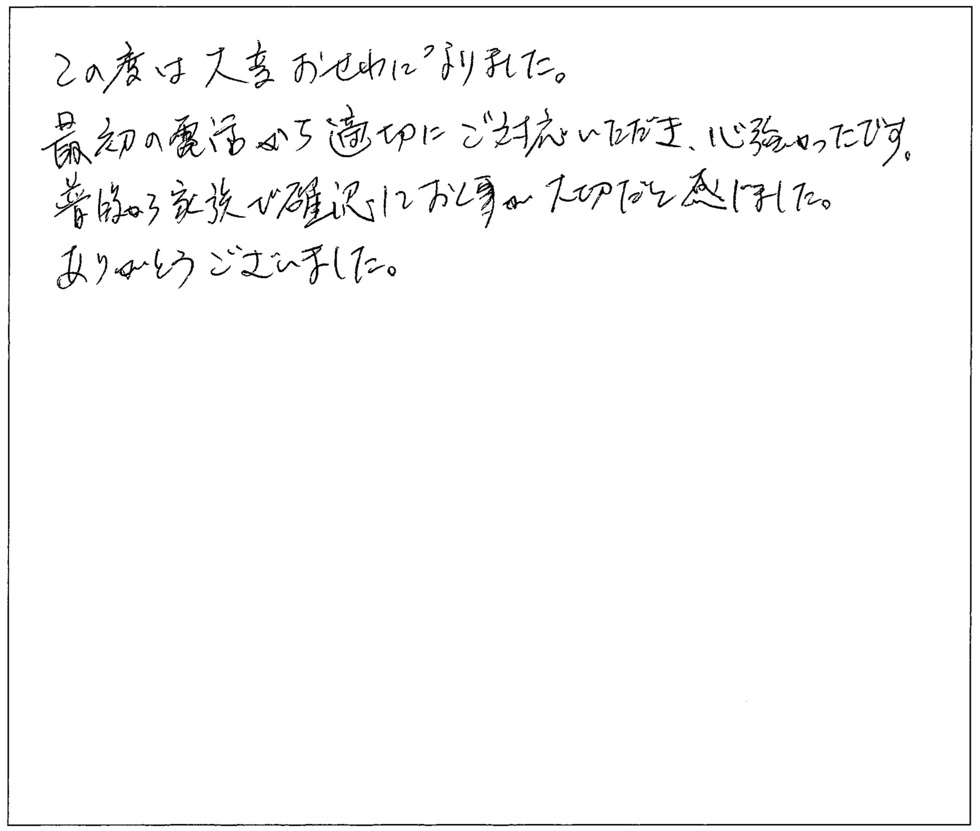 この度は大変おせわになりました。
最初の電話から適切にご対応いただき、心強かったです。
普段から家族で確認しておく事が大切だと感じました。
ありがとうございました。